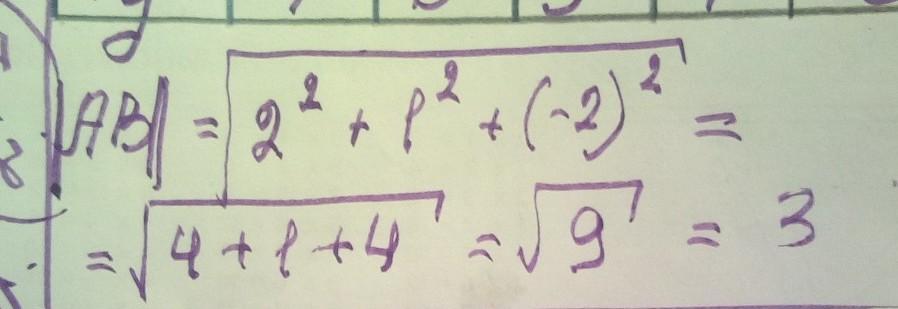 |AB| = √2² + 1² + (-2)² =
= √4 + 1 + 4 = √9 = 3